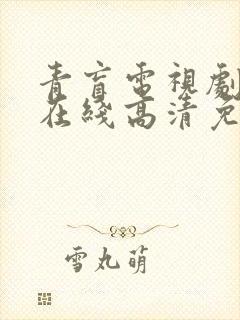 青盲電視劇
在綫高清免
雪丸萌